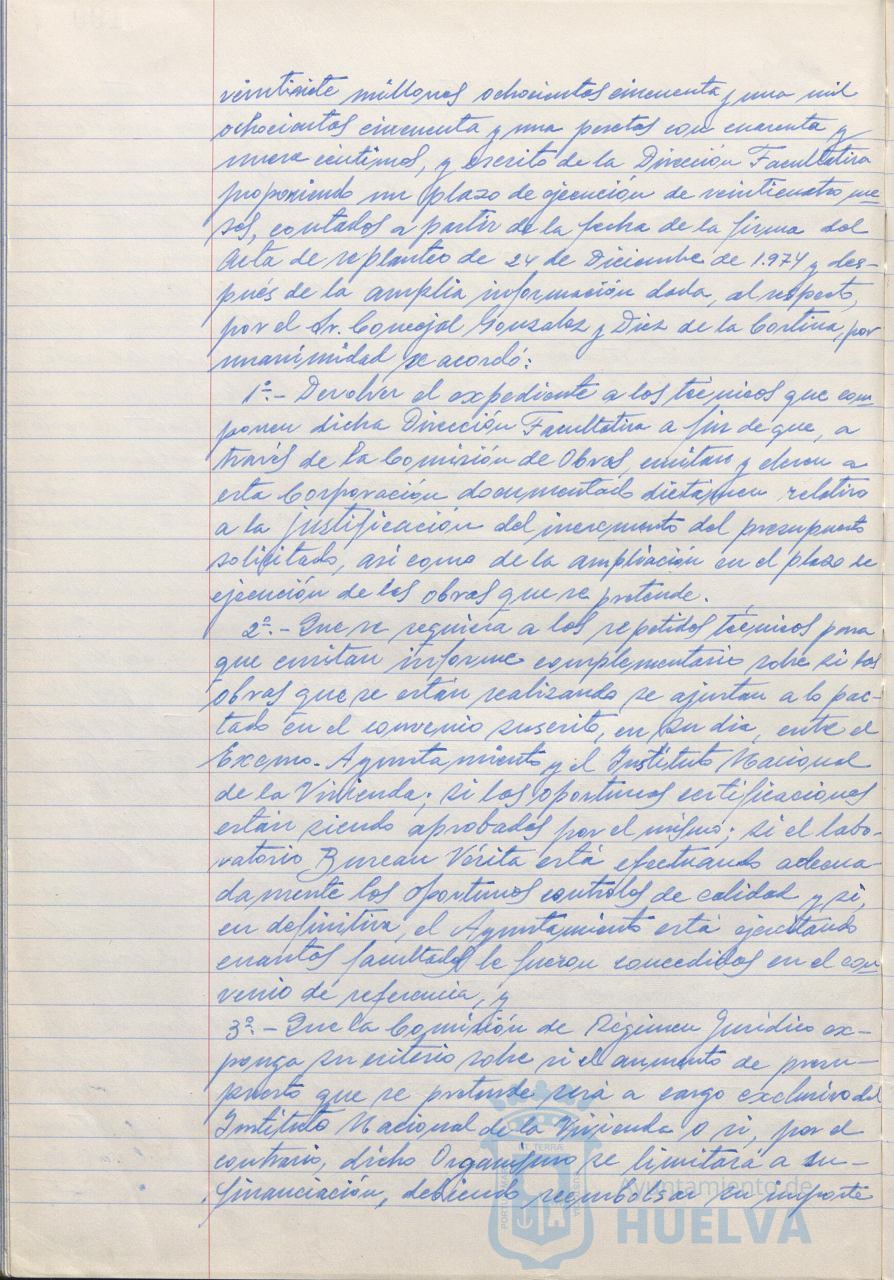 veintisiete millones ochocientas cincuenta y una mil
ochocientas cincuenta y una pesetas con cuarenta y
nueve céntimos, y escrito de la Dirección Facultativa
proponiendo un plazo de ejecución de veinticuatro me-
ses, contados a partir de la fecha de la firma del
Acta de replanteo de 24 de Diciembre de 1.974 y des-
pués de la amplia información dada, al respecto,
por el Sr. Concejal González y Díez de la Cortina, por
unanimidad se acordó:
1º.- Devolver el expediente a los técnicos que com
ponen dicha Dirección Facultativa a fin de que, a
través de la Comisión de Obras, emitan y eleven a
esta Corporación documentado dictámen relativo
a la justificación del incremento del presupuesto
solicitado, así como de la ampliación en el plazo de
ejecución de las obras que se pretende.
2º.- Que se requiera a los repetidos técnicos para
que emitan informe complementario sobre si las
obras que se están realizando se ajustan a lo pac-
tado en el convenio suscrito, en su día, entre el
Excmo. Ayuntamiento y el Instituto Nacional
de la Vivienda; si las oportunas certificaciones
están siendo aprobadas por el mismo; si el labo-
ratorio Bureau Vérita está efectuando adecua-
damente los oportunos controles de calidad y si,
en definitiva, el Ayuntamiento está ejercitando
cuantas facultades le fueron concedidas en el con
venio de referencia, y
3º.- Que la Comisión de Régimen Jurídico ex-
ponga su criterio sobre si el aumento de presu-
puesto que se pretende será a cargo exclusivo del
Instituto Nacional de la Vivienda o si, por el
contrario, dicho Organismo se limitará a su
financiación, debiendo reembolsar su importe
Ayuntamiento de
HUELVA